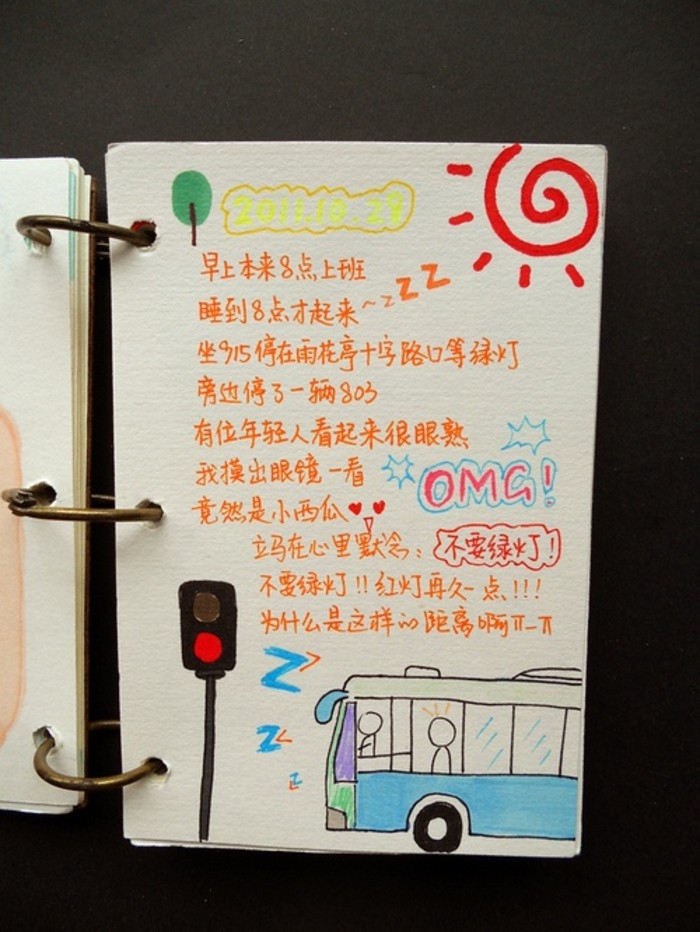 2011.10.29
早上本来8点上班
睡到8点才起来~zZZ
坐915停在雨花亭十字路口等绿灯
旁边停了一辆803
有位年轻人看起来很眼熟
我摸出眼镜一看
OMG!
竟然是小西瓜
立马在心里默念：不要绿灯！
不要绿灯!!红灯再久一点!!!
为什么是这样的距离啊π_π
Z
Z
Z